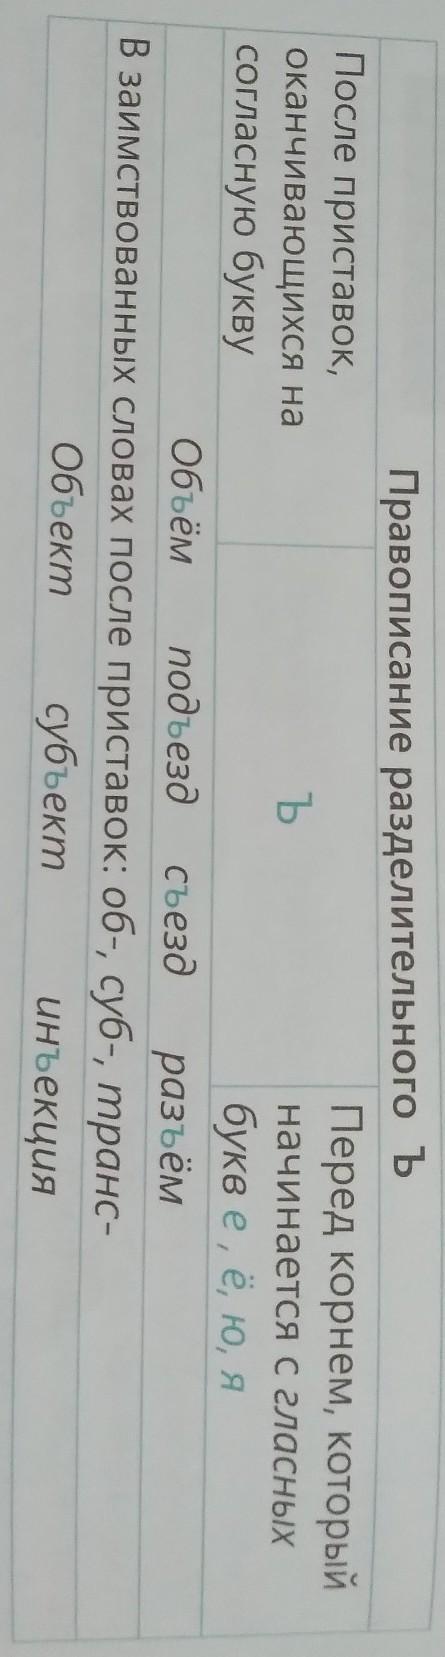 Правописание разделительного Ъ
После приставок,
оканчивающихся на
согласную букву
Ъ
Перед корнем, который
начинается с гласных
букв е , ё, ю, я
Объём подъезд съезд разъём
В заимствованных словах после приставок: об-, суб-, транс-
Объект субъект инъекция